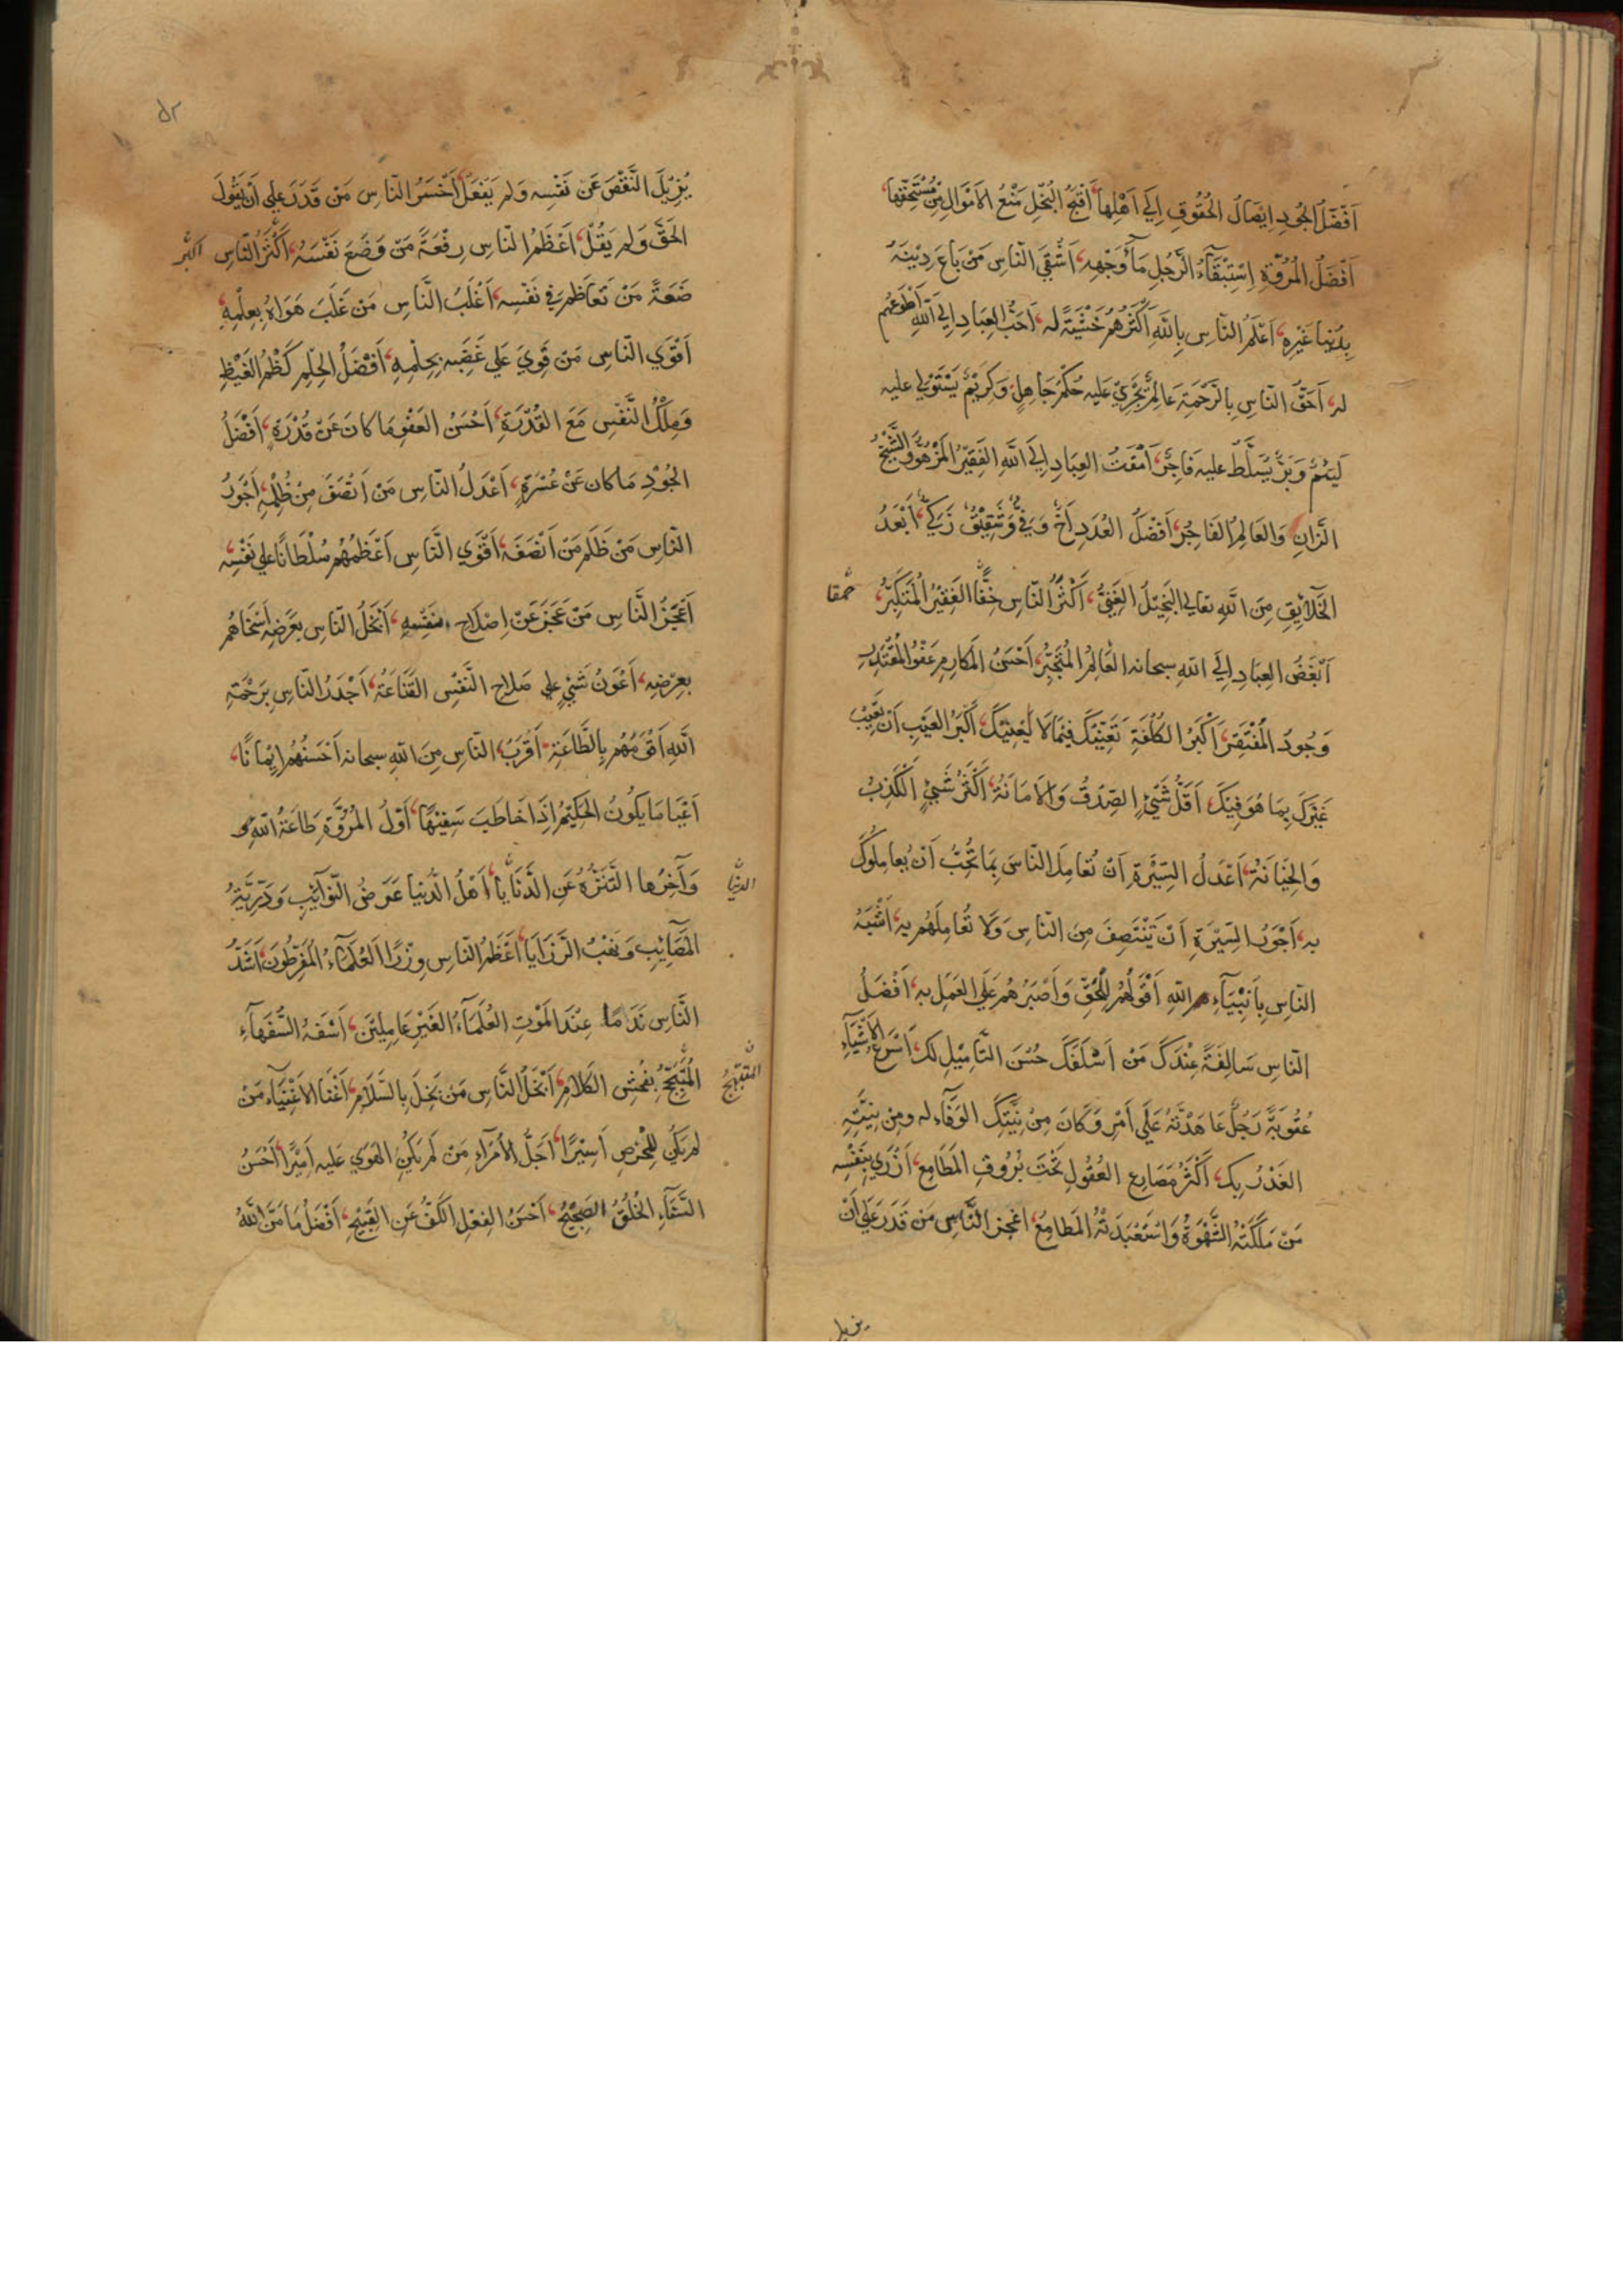 اَفْضَلُ الجُودِ اِيصَالُ الحُقُوقِ اِلَي اَهْلِهَا، اَقْبَحُ البُخْلِ مَنْعُ الاَمْوَالِ مِنْ مُسْتَحِقِّهَا،
اَفْضَلُ المُرُوَّةِ اِسْتِبْقَآءُ الرَّجُلِ مَآءَ وَجْهِهِ، اَشْقَي النَّاسِ مَنْ بَاعَ دِيْنَهُ
بِدُنْيَا غَيْرِهِ، اَعْلَمُ النَّاسِ بِاللَّهِ اَكْثَرُهُمْ خَشْيَةً لَه، اَحَبُّ العِبَادِ اِلَي اللَّهِ اَطْوَعُهُمْ
لَه، اَحَقُّ النَّاسِ بِالرَّحْمَةِ عَالِمٌ يَجْرِيْ عَلَيه حُكْمُ جَاهِلٍ وَكَرِيْمٌ يَسْتَوْلِي عليه
لَئِيْمٌ وَبَرٌّ يُسَلَّطُ عليه فَاجِرٌ، اَمْقَتُ العِبَادِ اِلَي اللَّهِ الفَقِيْرُ المَزْهُوُّ وَالشَّيْخُ
الزَّانِ وَالعَالِمُ الفَاجِرُ، اَفْضَلُ العُدَدِ اَخٌ وَفِيٌّ وَشَقِيْقٌ زَكِيٌّ، اَبْعَدُ
الخَلَآئِقِ مِنَ اللَّهِ تعالي البَخِيْلُ الغَنِيُّ، اَكْثَرُ النَّاسِ حُمْقًا الفَقِيْرُ المُتَكَبِّرُ، حُمْقا
اَبْغَضُ العِبَادِ اِلَي اللَّهِ سبحانه العَالِمُ المُتَجَبِّرُ، اَحْسَنُ المَكَارِمِ عَفْوُ المُقْتَدِرِ
وَجُودُ المُفْتَقِرِ، اَكْبَرُ الكُلْفَةِ تَعَنِّيْكَ فِيْمَا لَا يَعْنِيْكَ، اَكْبَرُ العَيْبِ اَنْ تَعِيْبَ
غَيْرَكَ بِمَا هُوَ فِيْكَ، اَقَلُّ شَيْءٍ الصِّدْقُ وَالاَمَانَةُ، اَكْثَرُ شَيْءٍ الْكَذِبُ
وَالخِيَانَةُ، اَعْدَلُ السِّيْرَةِ اَنْ تُعَامِلَ النَّاسَ بِمَا تُحِبُّ اَنْ يُعَامِلُوكَ
بِه، اَجْوَرُ السِّيْرَةِ اَنْ تَنْتَصِفَ مِنَ النَّاسِ وَلَا تُعَامِلَهُمْ بِه، اَشْبَهُ
النَّاسِ بِاَنْبِيَآءِ اللَّهِ اَقْوَلُهُمْ لِلْحَقِّ وَاَصْبَرُهُمْ عَلَي العَمَلِ بِه، اَفْضَلُ
النَّاسِ سَالِفَةً عِنْدَكَ مَنْ اَسْلَفَكَ حُسْنَ التَّامِيْلِ لَكَ، اَسْرَعُ الاَشْيَآءِ
عُقُوبَةً رَجُلٌ عَاهَدْتَهُ عَلَي اَمْرٍ وَكَانَ مِنْ نِيَّتِكَ الوَفَآءُ له ومِن نِيَّتِهِ
الغَدْرُ بِكَ، اَكْثَرُ مَصَارِعِ العُقُولِ تَحْتَ بُرُوقِ المَطَامِعِ، اَزْرَي بِنَفْسِه
مَنْ مَلَكَتْهُ الشَّهْوَةُ وَاسْتَعْبَدَتْهُ المَطَامِعُ، اعْجَزُ النَّاسِ مَن قَدَرَ عَلَي اَنْ
يزيل
يُزِيْلَ النَّقْصَ عَن نَفْسِه وَلَم يَفْعَلْ، اَخْسَرُ النَّاسِ مَنْ قَدَرَ عَلي اَنْ يَقُولَ
الحَقَّ وَلَم يَقُلْ، اَعْظَمُ النَّاسِ رِفْعَةً مَنْ وَضَعَ نَفْسَهُ، اَكْثَرُ النَّاسِ اكبر
ضَعَةً مَنْ تَعَاظَمَ فِي نَفْسِه، اَغْلَبُ النَّاسِ مَنْ غَلَبَ هَوَاهُ بِعِلْمِهِ،
اَقْوَي النَّاسِ مَن قَوِيَ عَلي غَضَبِه بِحِلْمِهِ، اَفْضَلُ الحِلْمِ كَظْمُ الغَيْظِ
وَمِلْكُ النَّفْسِ مَعَ القُدْرَةِ، اَحْسَنُ العَفْوِ مَا كَانَ عَنْ قُدْرَةٍ، اَفْضَلُ
الجُوْدِ مَا كان عَنْ عُسْرَةٍ، اَعْدَلُ النَّاسِ مَنْ اَنْصَفَ مِنْ ظُلْمِهِ، اَجْوَرُ
النَّاسِ مَنْ ظَلَمَ مَنْ اَنْصَفَهُ، اَقْوَي النَّاسِ اَعْظَمُهُمْ سُلْطَانًا عَلي نَفْسِهِ،
اَعْجَزُ النَّاسِ مَنْ عَجَزَ عَنْ اِصْلَاحِ نَفْسِهِ، اَبْخَلُ النَّاسِ بِعَرَضِهِ اَسْخَاهُمْ
بِعِرْضِه، اَعْوَنُ شَيْءٍ عَلي صَلَاحِ النَّفْسِ القَنَاعَةُ، اَجْدَرُ النَّاسِ بِرَحْمَةِ
اللَّهِ اَقْوَمُهُمْ بِالطَّاعَةِ، اَقْرَبُ النَّاسِ مِنَ اللَّهِ سبحانه اَحْسَنُهُمْ اِيْمَانًا،
اَعْيَا مَا يَكُونُ الحَكِيْمُ اِذَا خَاطَبَ سَفِيْهًا، اَوَّلُ المُرُوَّةِ طَاعَةُ اللَّهِ
وَآخِرُهَا التَّنَزُّهُ عَنِ الدَّنَايَا، اَهْلُ الدُّنْيَا غَرَضُ النَّوَآئِبِ وَدَرِيَّةُ الدنيا
المَصَآئِبِ وَنَهْبُ الرَّزَايَا، اَعْظَمُ النَّاسِ وِزْرًا العُلَمَآءُ المُفَرِّطُونَ، اَشَدُّ
النَّاسِ نَدَمًا عِنْدَ المَوْتِ العُلَمَآءُ الغَيْرُ عَامِلِيْنَ، اَسْفَهُ السُّفَهَآءِ
المُتَبَجِّحُ بِفُحْشِ الكَلَامِ، اَبْخَلُ النَّاسِ مَنْ بَخِلَ بِالسَّلَامِ، اَغْنَا الاَغْنِيَآءِ مَنْ المتبهج
لَم يَكُن لِلْحِرْصِ اَسِيْرًا، اَجَلُّ الاُمَرَآءِ مَنْ لَم يَكُنِ الهَوَي عَلَيه اَمِيْرًا، اَحْسَنُ
السَّنَآءِ الخُلُقُ السَّجِيْحُ، اَحْسَنُ الفِعْلِ الكَفُّ عَنِ القَبِيْحِ، اَفْضَلُ مَا مَنَّ اللَّهُ